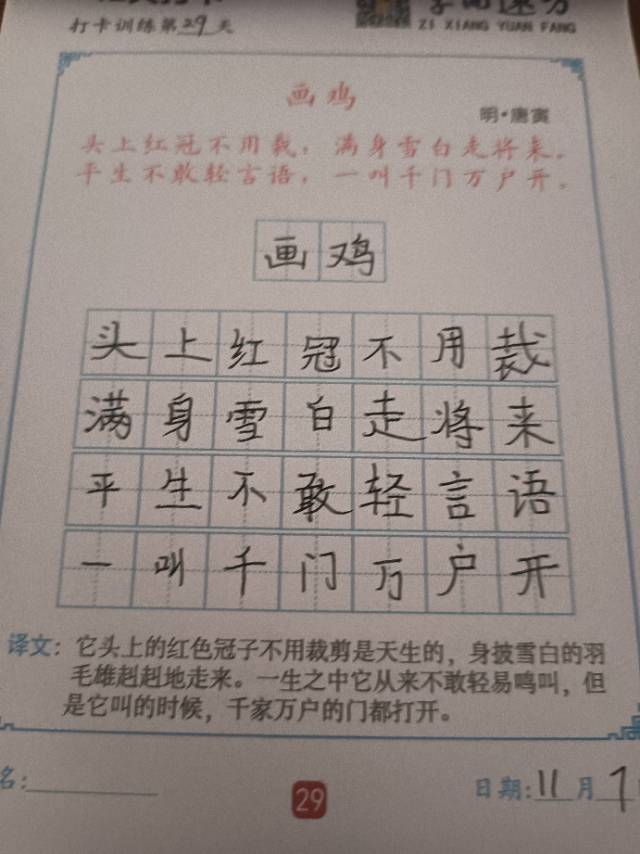 打卡训练第29天
ZI XIANG YUAN FANG
画鸡
明·唐寅
头上红冠不用裁，满身雪白走将来。
平生不敢轻言语，一叫千门万户开。
画鸡
头上红冠不用裁
满身雪白走将来
平生不敢轻言语
一叫千门万户开
译文：它头上的红色冠子不用裁剪是天生的，身披雪白的羽
毛雄赳赳地走来。一生之中它从来不敢轻易鸣叫，但
是它叫的时候，千家万户的门都打开。
名：
29
日期：11月7